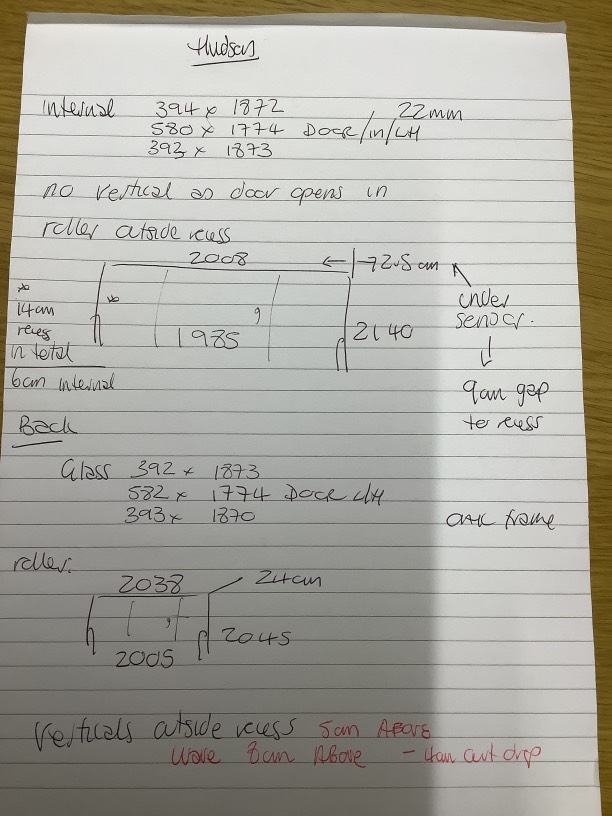 Hudson
internal 394 x 1872 22mm
580 x 1774 DOOR/in/LH
393 x 1873
no vertical as door opens in
roller outside recess
2008 ← 72.5cm
14cm
recess
in total
1985
2140
under
sensor.
↓
6cm internal
9cm gap
to recess
Back
Glass 392 x 1873
582 x 1774 DOOR LH
393 x 1870
frame
roller:
2038 24cm
2045
2005
Verticals outside recess 5cm ABOVE
Wave 8cm ABOVE - 4cm cut drop